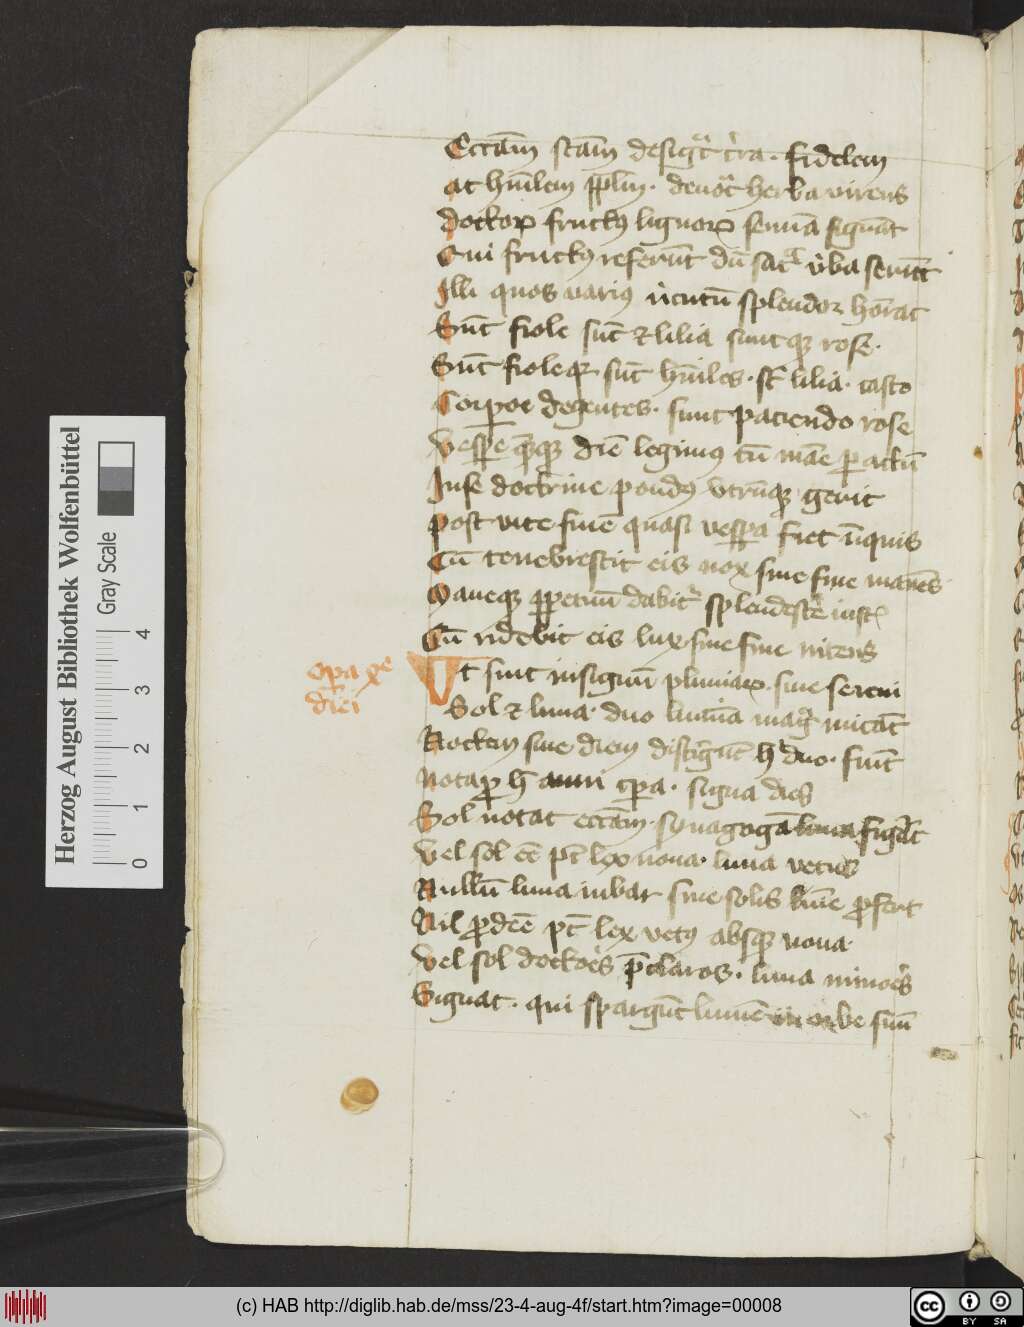 Eccam scam desigt tra. fidelem
at humlem pplm. denot herba virens
doctor fructus lignor semina signant
Qui fructus referunt du sac vba serut
Illi quos varius vtutu splendor horat
Sunt fiole sut et lilia suntque rose.
Sunt fioleque sut humiles. st lilia. casto
Corpore degentes. sunt paciendo rose
Vespe queque die legimus cu mae pactu
Inse doctrine pondus vtrumque gerit
Post vite fine quasi vespa fiet inquis
Cu tenebrescit eis nox sine fine manes
Maneque ppetuu dabitr splendescere iust
Cu ridebit eis lux sine fine nitens
opa xe
diei
Ut sint insignu pluuiar. siue sereni
Sol et luna. duo lumia mag micat
Noctem siue diem distigut h duo. sunt
Notap h anni tpa. signa dies
Sol notat eccam. synagoga luna figut
Vel sol ee pt lex noua. luna vetus
Nullu luna iubar sine solis lumie profert
Nil prodee pt lex vetus absque noua.
Vel sol doctoes pclaros. luna minoes
Signat. qui spargut lume in orbe suu
Herzog August Bibliothek Wolfenbüttel
Gray Scale
0 1 2 3 4
(c) HAB http://diglib.hab.de/mss/23-4-aug-4f/start.htm?image=00008
cc BY SA